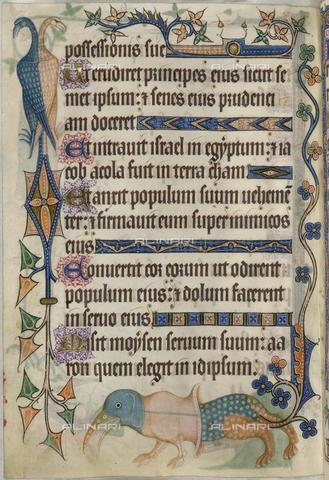 possessionis sue
Ut erudiret principes eius sicut se
met ipsum: ⁊ senes eius prudenci
am doceret
Et intravit israel in egyptum: ⁊ ia
cob acola fuit in terra cham
Et auxit populum suum vehemẽ
ter: ⁊ firmavit eum super inimicos
eius
ALINARI
Convertit cor eorum ut odirent
populum eius: ⁊ dolum facerent
in servo eius
Misit moysen servum suum: aa
ron quem elegit in idipsum
ALINARI